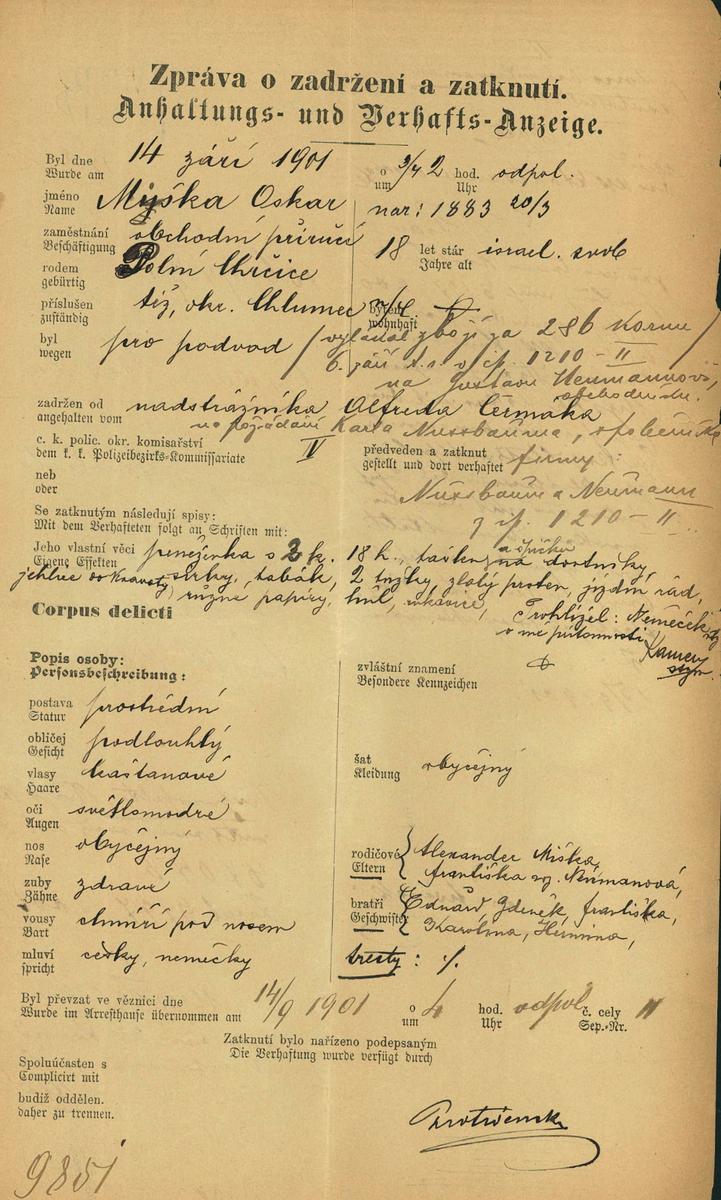 Zpráva o zadržení a zatknutí.
Anhaltungs- und Verhafts-Anzeige.
Byl dne 14 září 1901 o 3/4 2 hod. odpol.
Wurde am um Uhr
jméno Myška Oskar nar: 1883 20/3
Name
zaměstnání obchodní příručí 18 let stár israel. svob
Beschäftigung Jahre alt
rodem Polní Chrčice
gebürtig
příslušen též, okr. Chlumec bytem
zuständig wohnhaft
byl pro podvod / vylákal zboží za 286 korun /
wegen 6. září t. r. v čp. 1210-II
na Gustavu Neumannovi,
obchodníku.
zadržen od nadstrážníka Alfreda Čermáka
angehalten vom na požádání Karla Nussbauma, společníka
c. k. polic. okr. komisařství IV předveden a zatknut firmy:
dem k. k. Polizeibezirks-Kommissariate gestellt und dort verhaftet
neb Nussbaum a Neumann
oder z čp. 1210-II.
Se zatknutým následují spisy:
Mit dem Verhafteten folgt an Schriften mit:
Jeho vlastní věci peněženka s 2 k. 18 h., na doutníky,
Eigene Effekten
jehlice do kravaty, tabák, 2 tužky, zlatý prsten, jízdní řád,
různé papíry, hůl, rukavice, Prohlížel: Němeček
v mé přítomnosti
Corpus delicti
Popis osoby:
Personsbeschreibung:
zvláštní znamení
Besondere Kennzeichen
postava prostřední
Statur
obličej podlouhlý
Gesicht
vlasy kaštanové
Haare
šat obyčejný
Kleidung
oči světlomodré
Augen
nos obyčejný
Nase
rodičové Alexander Miška,
Eltern Františka roz. Neumanová,
zuby zdravé
Zähne
bratři Eduard, Zdeněk, Františka,
Geschwister Karolina, Hermina,
vousy chmíří pod nosem
Bart
mluví česky, německy
spricht
tresty: ·/.
Byl převzat ve věznici dne 14/9 1901 o 4 hod. odpol. č. cely 11
Wurde im Arresthause übernommen am um Uhr Sep.-Nr.
Zatknutí bylo nařízeno podepsaným
Die Verhaftung wurde verfügt durch
Spoluúčasten s
Complicirt mit
budiž oddělen.
daher zu trennen.
9851